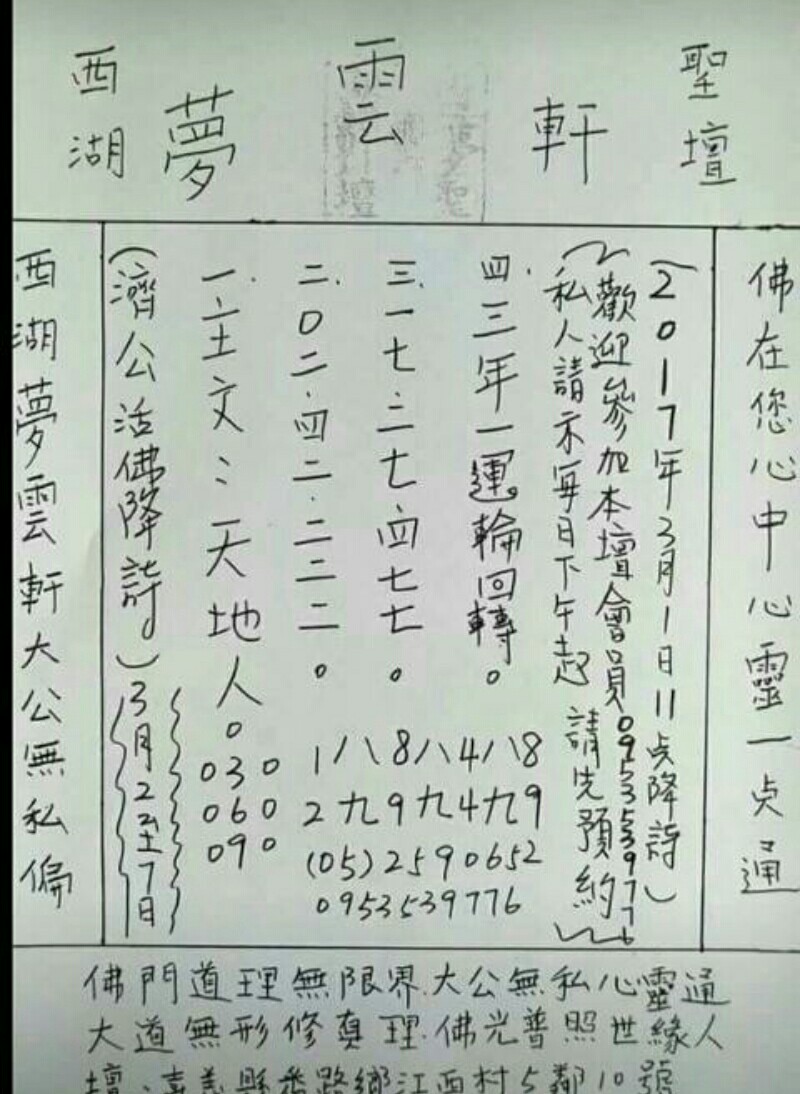 聖壇
軒
雲
夢
西湖
佛在您心中心靈一点通
(2017年3月1日11点降詩)
歡迎參加本壇會員0953539776
私人請示每日下午起 請先預約
四.三年一運輪回轉。
三.一七.二七四七七。
二.0二.四二.二二二。
一.文:天地人
(濟公活佛降詩)3月2至7日
0
030
060
090
1八8八4八8
2九9九4九9
(05)2590652
0953539776
西湖夢雲軒大公無私偏
佛門道理無限界.大公無私心靈通
大道無形修真理.佛光普照世緣人
壇:嘉義縣番路鄉江西村5鄰10號